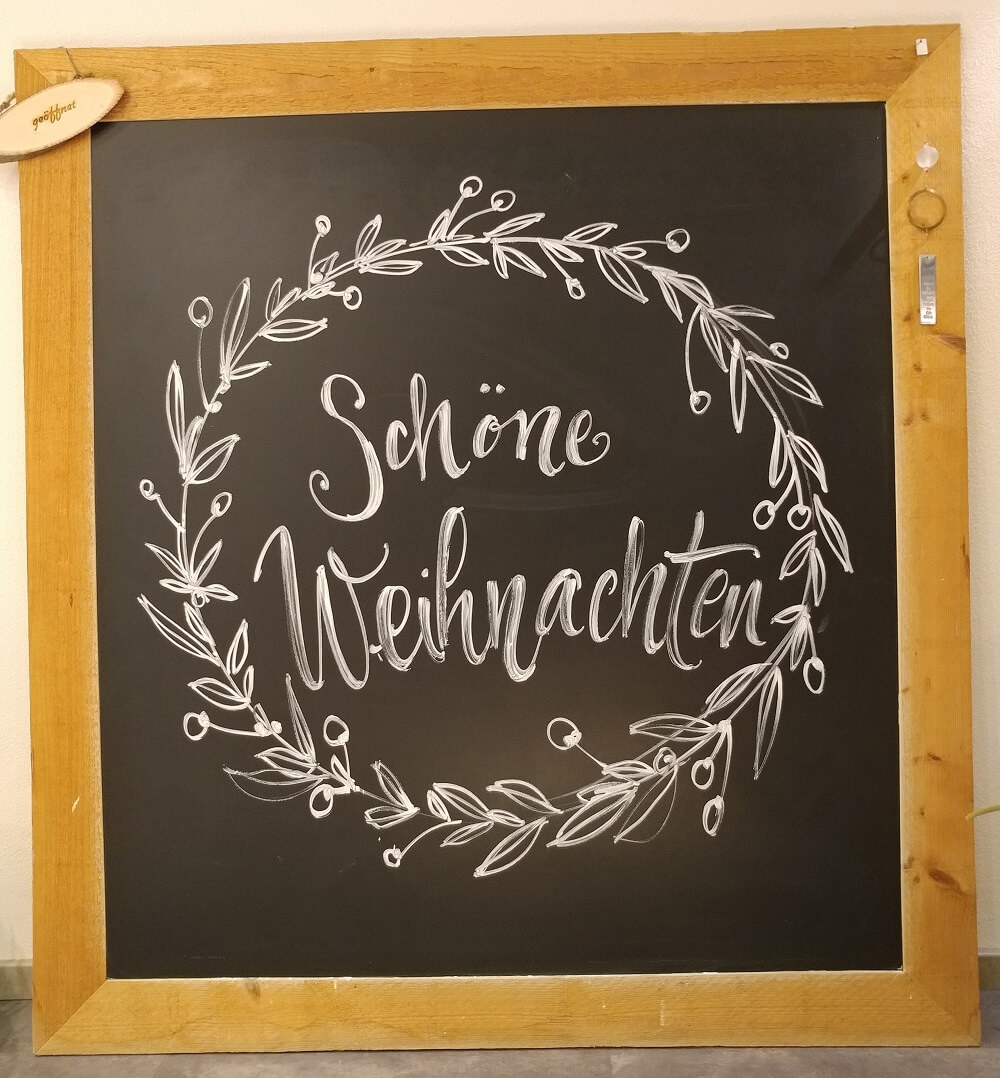 geöffnet
Schöne
Weihnachten